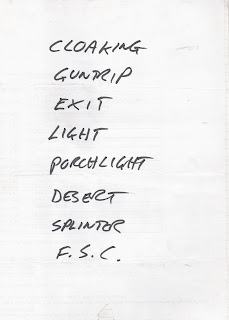 CLOAKING
GUNDRIP
EXIT
LIGHT
PORCHLIGHT
DESERT
SPLINTER
F.S.C.